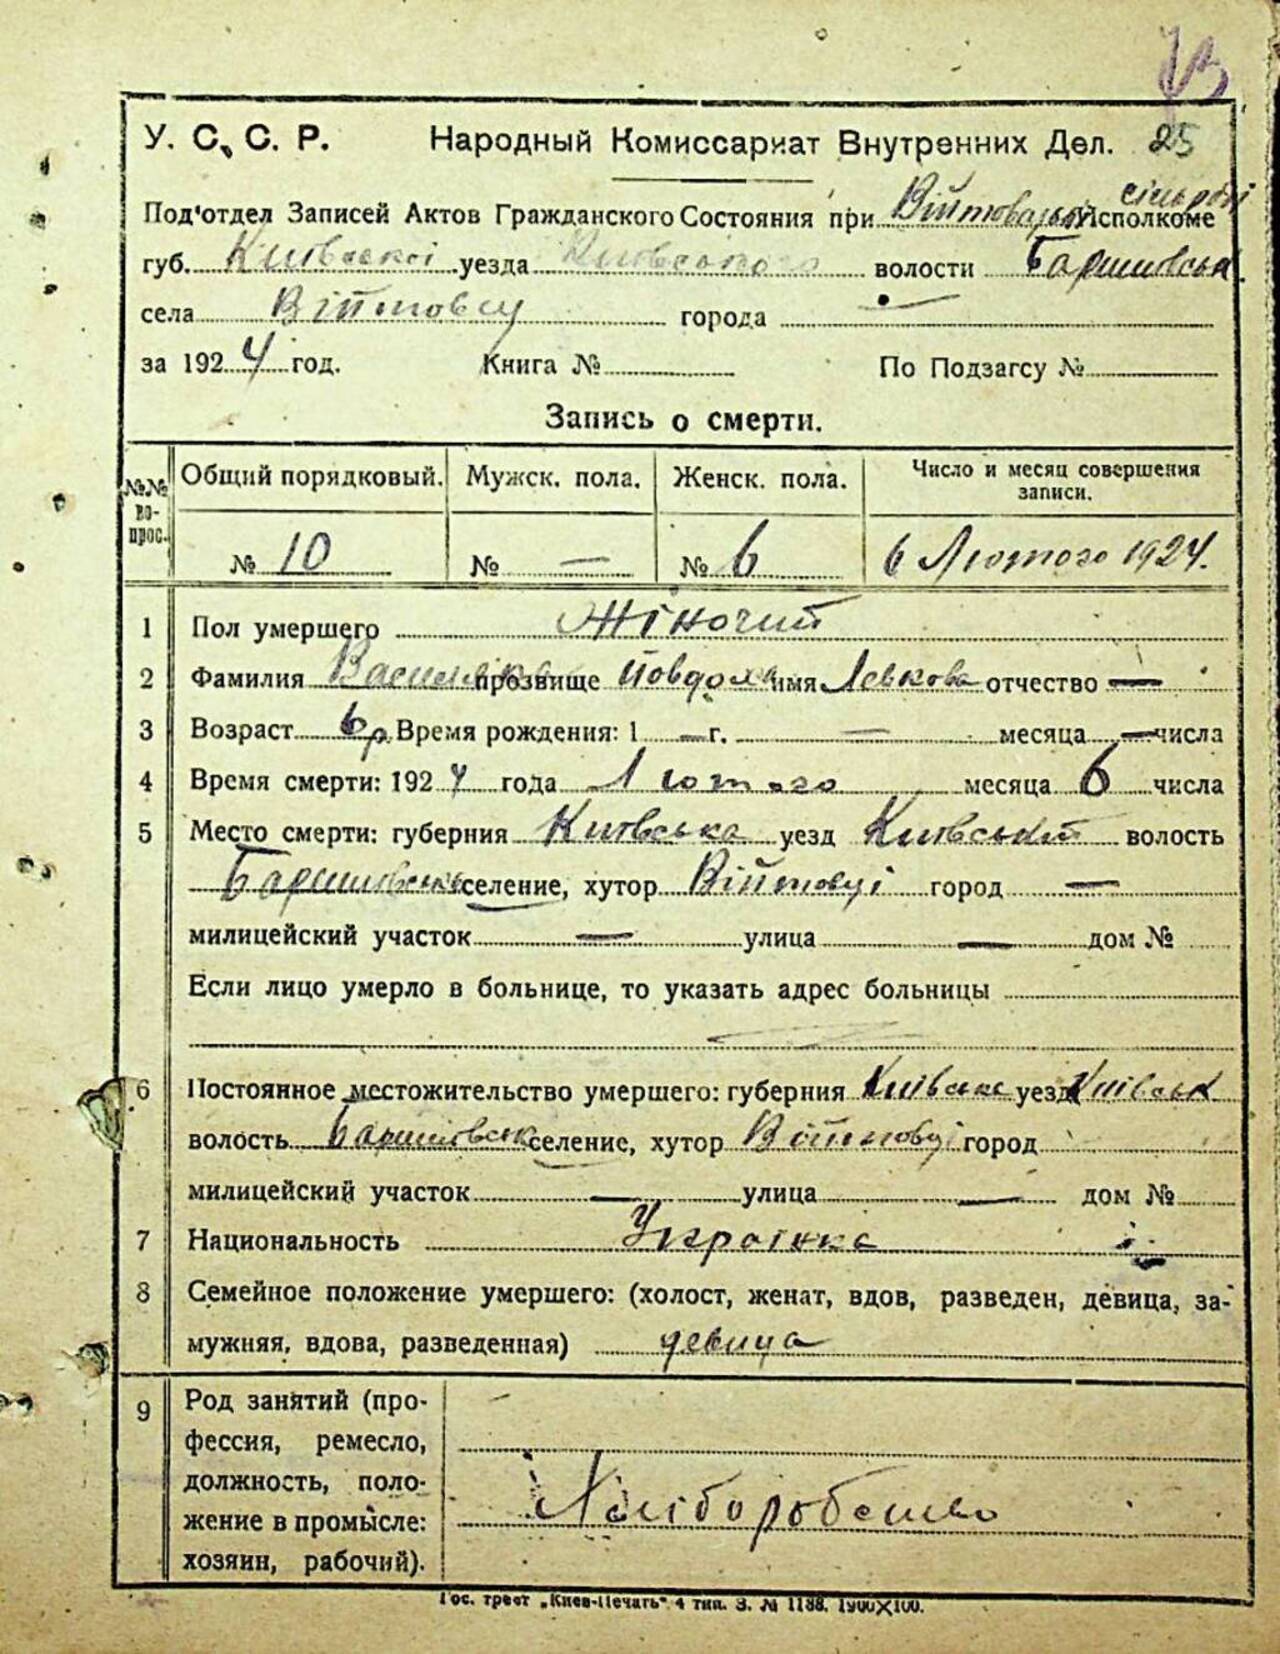 У. С. С. Р. Народный Комиссариат Внутренних Дел. 25
Под'отдел Записей Актов Гражданского Состояния при Війтовецькій сільраді Исполкоме
губ. Київської уезда Київського волости Баришовська
села Війтовці города —
за 1924 год. Книга № По Подзагсу №
Запись о смерти.
№№ вопрос. Общий порядковый. Мужск. пола. Женск. пола. Число и месяц совершения записи.
№ 10 № — № 6 6 Лютого 1924.
1 Пол умершего Жіночий
2 Фамилия прозвище Йовдоха имя Левкова отчество —
3 Возраст 6 р. Время рождения: 1 — г. — месяца — числа
4 Время смерти: 1924 года Лютого месяца 6 числа
5 Место смерти: губерния Київська уезд Київський волость
Баришовська селение, хутор Війтовці город —
милицейский участок — улица — дом №
Если лицо умерло в больнице, то указать адрес больницы
6 Постоянное местожительство умершего: губерния Київська уезд Київськ
волость Баришовськ селение, хутор Війтовці город
милицейский участок — улица — дом №
7 Национальность Українка
8 Семейное положение умершего: (холост, женат, вдов, разведен, девица, за-
мужняя, вдова, разведенная) девица
9 Род занятий (про-
фессия, ремесло,
должность, поло-
жение в промысле:
хозяин, рабочий).
Хліборобство
Гос. трест „Киев-Печать" 4 тип. З. № 1188. 1900×100.